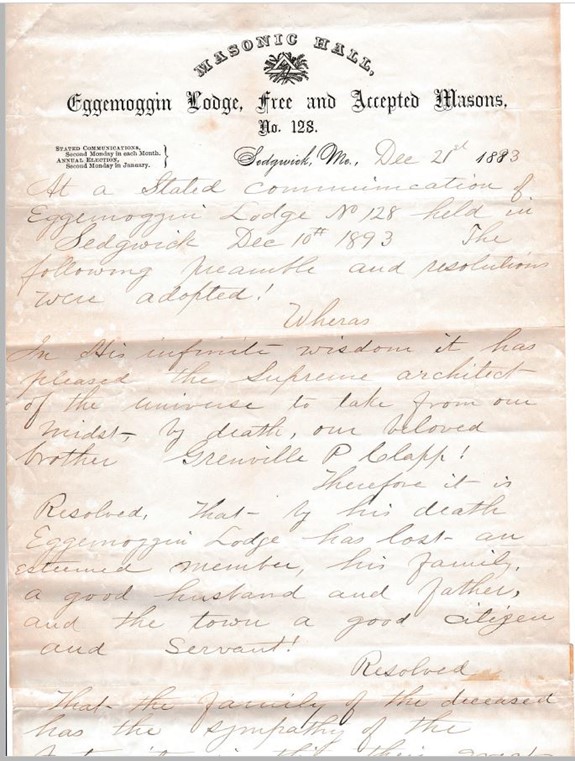 MASONIC HALL,
Eggemoggin Lodge, Free and Accepted Masons,
No. 128.
STATED COMMUNICATIONS,
Second Monday in each Month.
ANNUAL ELECTION,
Second Monday in January.
Sedgwick, Me., Dec 21st 1893
At a Stated communication of
Eggemoggin Lodge No 128 held in
Sedgwick Dec 10th 1893 The
following preamble and resolutions
were adopted!
Wheras
In His infinite wisdom it has
pleased the Supreme architect
of the universe to take from our
midst, by death, our beloved
brother Grenville P Clapp!
Therefore it is
Resolved, That by his death
Eggemoggin Lodge has lost an
esteemed member, his family,
a good husband and father,
and the town a good citizen
and Servant!
Resolved
That the family of the deceased
has the sympathy of the
in this their great